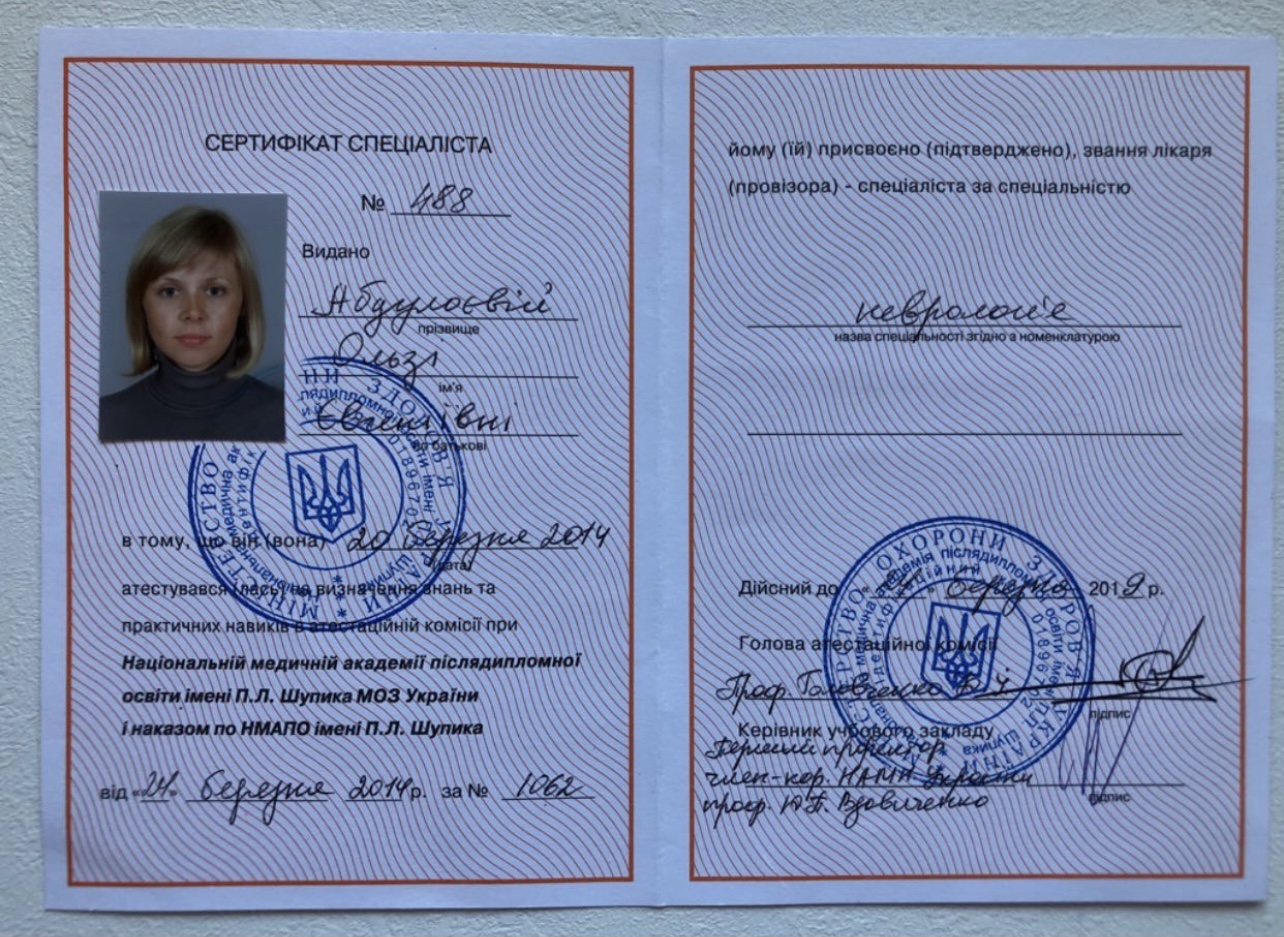 СЕРТИФІКАТ СПЕЦІАЛІСТА
№ 488
Видано
Абдулоєвій
прізвище
Ользі
ім'я
Євгеніївні
по батькові
в тому, що він (вона) 20 березня 2014
(дата)
атестувався (лась) на визначення знань та
практичних навиків в атестаційній комісії при
Національній медичній академії післядипломної
освіти імені П.Л. Шупика МОЗ України
і наказом по НМАПО імені П.Л. Шупика
від «24» березня 2014 р. за № 1062
йому (їй) присвоєно (підтверджено), звання лікаря
(провізора) - спеціаліста за спеціальністю
неврологія
назва спеціальності згідно з номенклатурою
Дійсний до » березня 2019 р.
Голова атестаційної комісії
Проф. Головченко
підпис
Керівник учбового закладу
Перший проректор
член-кор. НАМН України
проф. Ю.П. Вдовиченко
підпис